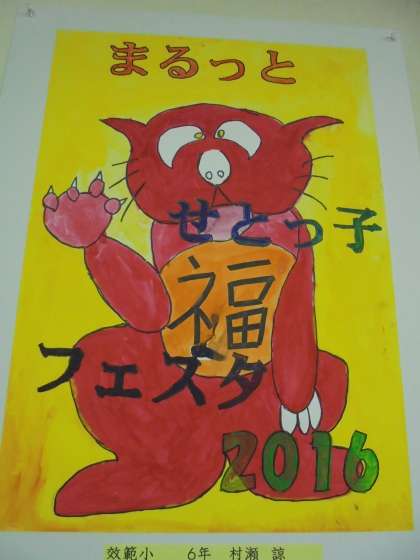 まるっと
せとっ子
福
フェスタ
2016
効範小 6年 村瀬 諒